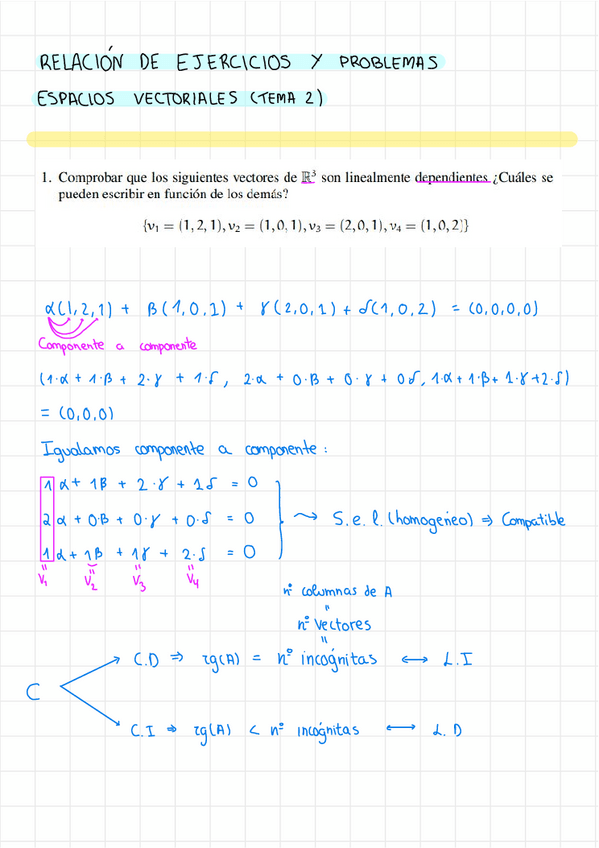 RELACIÓN DE EJERCICIOS Y PROBLEMAS
ESPACIOS VECTORIALES (TEMA 2)
1. Comprobar que los siguientes vectores de ℝ³ son linealmente dependientes ¿Cuáles se
pueden escribir en función de los demás?
{v₁ = (1,2,1), v₂ = (1,0,1), v₃ = (2,0,1), v₄ = (1,0,2)}
α(1,2,1) + β(1,0,1) + γ(2,0,1) + δ(1,0,2) = (0,0,0,0)
Componente a componente
(1·α + 1·β + 2·γ + 1·δ, 2·α + 0·β + 0·γ + 0δ, 1·α + 1·β + 1·γ + 2·δ)
= (0,0,0)
Igualamos componente a componente:
1α + 1β + 2·γ + 1δ = 0
2α + 0·β + 0·γ + 0·δ = 0 ⇝ S.e.l. (homogéneo) ⇒ Compatible
1α + 1β + 1γ + 2·δ = 0
= = = =
V₁ V₂ V₃ V₄
nº columnas de A
=
nº vectores
=
C.D ⇒ rg(A) = nº incógnitas ⟷ L.I
C
C.I ⇒ rg(A) < nº incógnitas ⟷ L.D